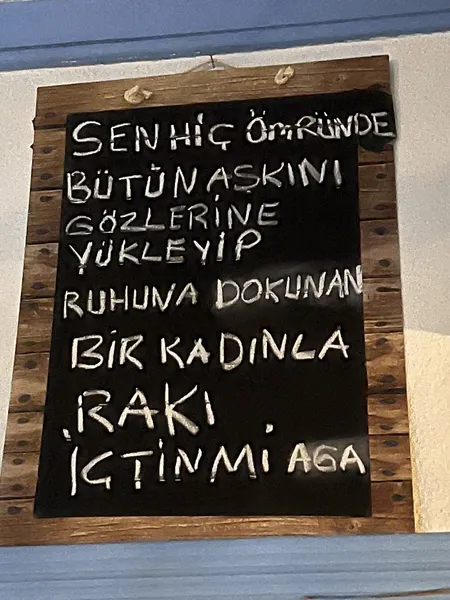 SEN HİÇ ÖMRÜNDE
BÜTÜN AŞKINI
GÖZLERİNE
YÜKLEYİP
RUHUNA DOKUNAN
BİR KADINLA
RAKI
İÇTİNMİ AGA